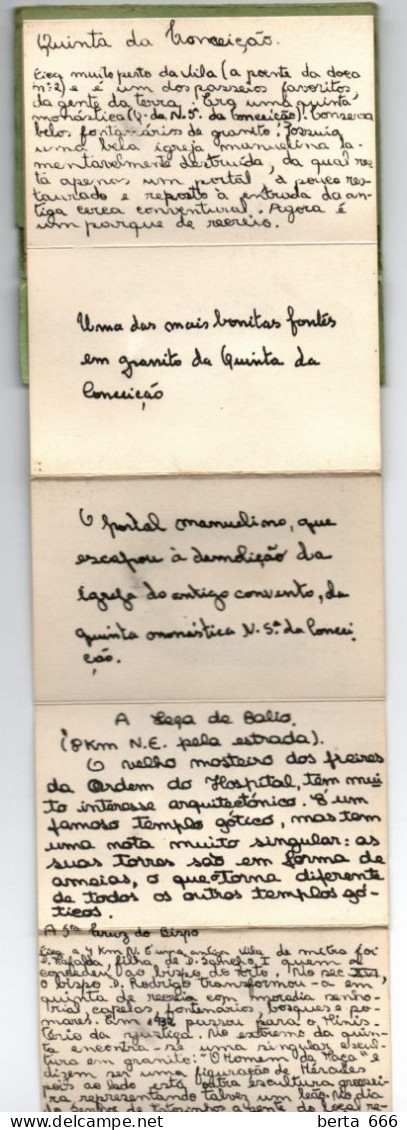 Quinta da Conceição.
Fica muito perto da Vila (a poente da doca
nº 2) e é um dos passeios favoritos
da gente da terra. Era uma quinta
monástica (Q. da N. Sª. da Conceição). Conserva
belos fontanários de granito. Possuia
uma bela igreja manuelina la-
mentavelmente destruida, da qual res-
ta apenas um portal á pouco res-
taurado e reposto à entrada da an-
tiga cerca conventural. Agora é
um parque de recreio.
Uma das mais bonitas fontes
em granito da Quinta da
Conceição
O portal manuelino, que
escapou à demolição da
igreja do antigo convento, da
quinta monástica N. Sª. da Concei
ção.
A Leça de Balio.
(8 Km N.E. pela estrada).
O velho mosteiro dos freires
da Ordem do Hospital, tem mui
to interesse arquitectónico. É um
famoso templo gótico, mas tem
uma nota muito singular: as
suas torres são em forma de
ameias, o que o torna diferente
de todos os outros templos gó-
ticos.
A Stª Cruz do Bispo
Fica a 4 Km N. É uma antiga Vila de mitra foi
D. Mafalda, filha de D. Sancho I quem a
concedeu ao bispo do Porto. No sec XVI,
o bispo D. Rodrigo transformou-a em
quinta de recreio com moradia senho-
rial, capelas, fontenários, bosques e po-
mares. Em passou para o Minis-
tério da Justiça. No extremo da quin-
ta encontra-se uma singular escul-
tura em granito: "O Homem da Maça" e
dizem ser uma figuração de Hércules
pois ao lado está outra escultura grossei-
ra representando talvez um leão. No dia
do Senhor de a gente do local re-
delcampe.net
berta 666